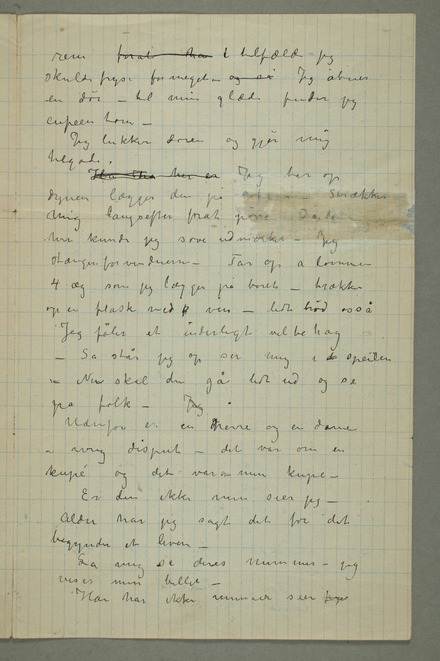 rem forat han i tilfælde jeg
skulde fryse for meget – og så Jeg åbner
en dør – til min glæde finder jeg
cupeen tom –
Jeg lukker døren og gjør mig
Jeg tar op
dynen lægger den på strækker
mig langsefter forat prøve
her kunde jeg sove udmærket – Jeg
stænger for vinduerne – Tar op a lommen
4 æg som jeg lægger på bordet – trækker
op en flask med vin – lidt brød også
Jeg føler et underligt velbehag
– Så står jeg op ser mig i speilen
– Nu skal du gå lidt ud og se
på folk – Jeg
Udenfor er en herre og en dame
– ivrig disput – det var om en
kupé og det var om min kupe –
Er den ikke min sier jeg –
Alder har jeg sagt det før det
begynder et leven –
La mig se deres nummer – jeg
viser min billet –
Han har ikke nummer sier